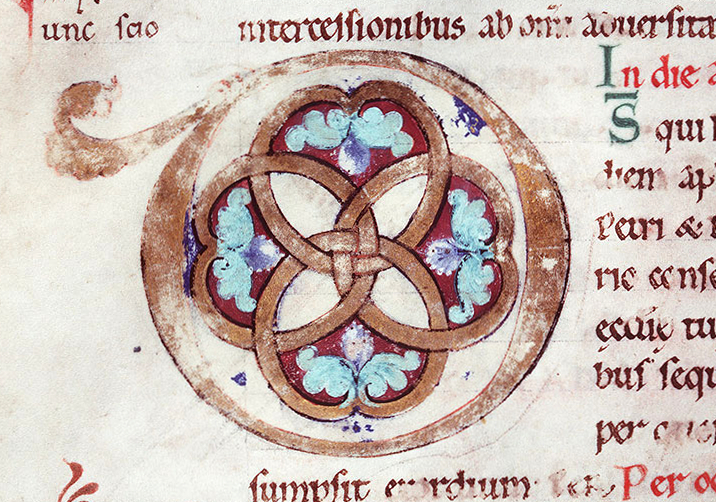 unc scio
intercessionibus ab om̅i aduersita
In die a
S̅ qui
diem ap
Petri &
ric conse
ęcclię tu
bus sequ
per
sumpsit exordium Per